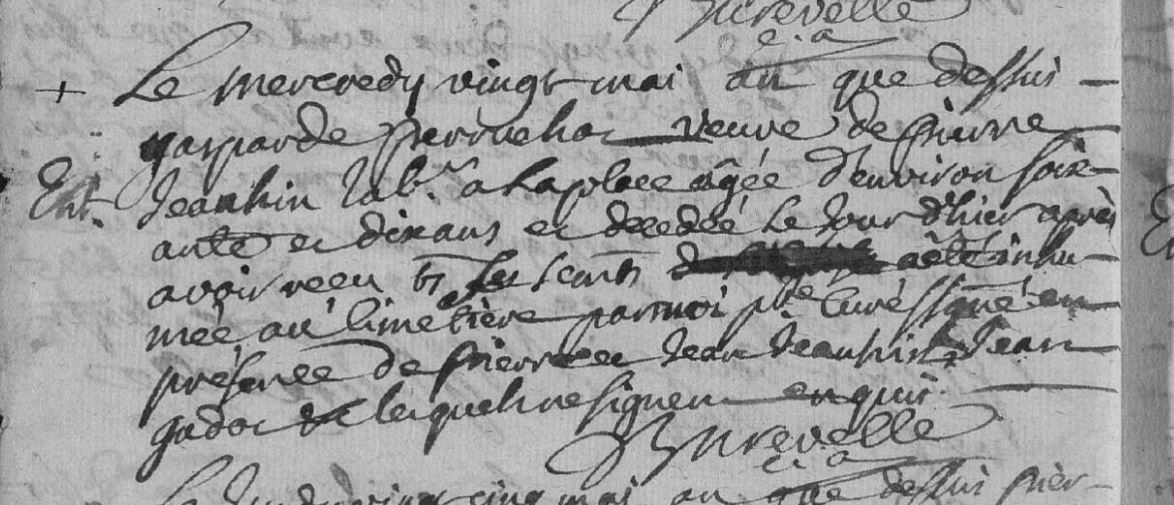 Burevelle
c. a
+ Le mercredy vingt mai an que dessus
gasparde perruchoc veuve de pierre
Ent. Jeanhin lab.r a Laplace agée d'environ soix-
ante et dix ans et decedeé Le Jour d'hier après
avoir receu ts les scmts a été inhu-
meé au Cimetière par moi p.tre Curé ssigné en
présence de pierre et Jean Jeanhin, Jean
gadoc lesquels ne signent enquis
Burevelle
c. a
Le vingt cinq mai an que dessus pier-